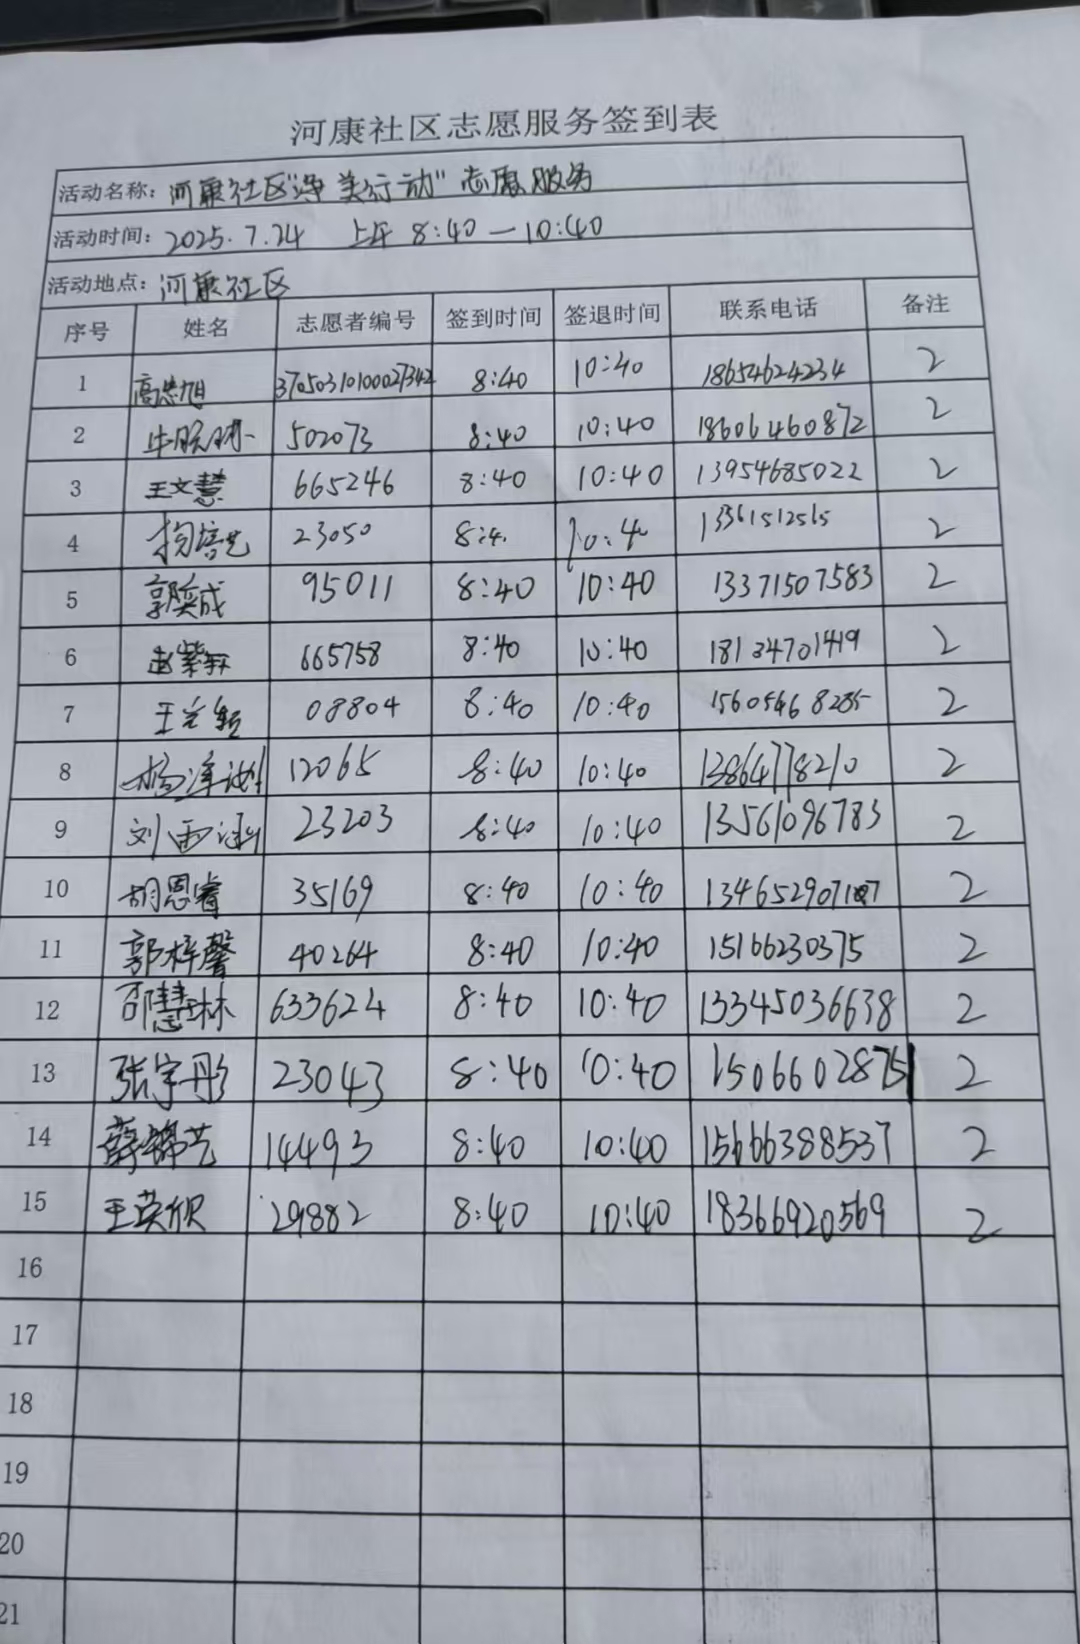 河康社区志愿服务签到表
活动名称：河康社区"净美行动"志愿服务
活动时间：2025.7.24 上午 8:40—10:40
活动地点：河康社区
序号 姓名 志愿者编号 签到时间 签退时间 联系电话 备注
1 高 旭 37050310100027342 8:40 10:40 18654624234 2
2 牛 502073 8:40 10:40 18606460872 2
3 王文慧 665246 8:40 10:40 13954685022 2
4 杨培艺 23050 8:4 10:40 13361512565 2
5 郭奕成 95011 8:40 10:40 13371507583 2
6 赵紫 665758 8:40 10:40 18134701419 2
7 王 08804 8:40 10:40 15605468285 2
8 杨 12065 8:40 10:40 13864778210 2
9 刘雨涵 23203 8:40 10:40 13561096783 2
10 胡恩睿 35169 8:40 10:40 2
11 郭梓馨 40264 8:40 10:40 15166230375 2
12 邵慧琳 633624 8:40 10:40 13345036638 2
13 张宇彤 23043 8:40 10:40 15066028751 2
14 薛锦艺 14493 8:40 10:40 15666388537 2
15 王英欣 29882 8:40 10:40 18366920569 2
16
17
18
19
20
21